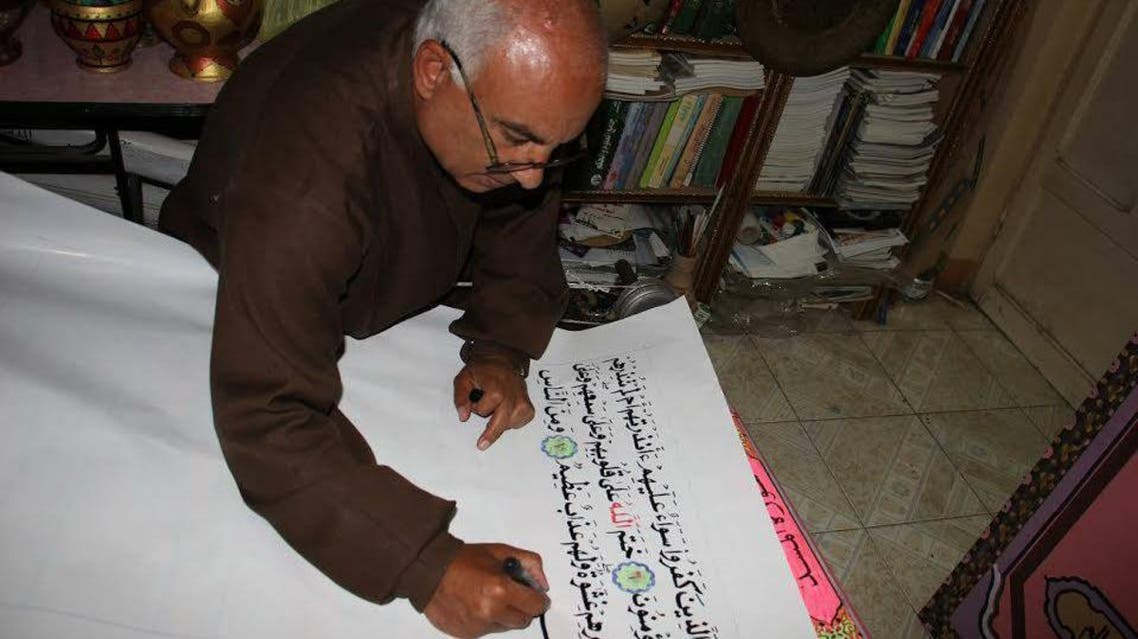 الَّذِينَ كَفَرُوا سَوَاءٌ عَلَيْهِمْ ءَأَنذَرْتَهُمْ أَمْ لَمْ تُنذِرْهُمْ
ؤْمِنُونَ ٦ خَتَمَ اللَّهُ عَلَىٰ قُلُوبِهِمْ وَعَلَىٰ سَمْعِهِمْ وَعَلَىٰ
رِهِمْ غِشَٰوَةٌ وَلَهُمْ عَذَابٌ عَظِيمٌ ٧ وَمِنَ النَّاسِ